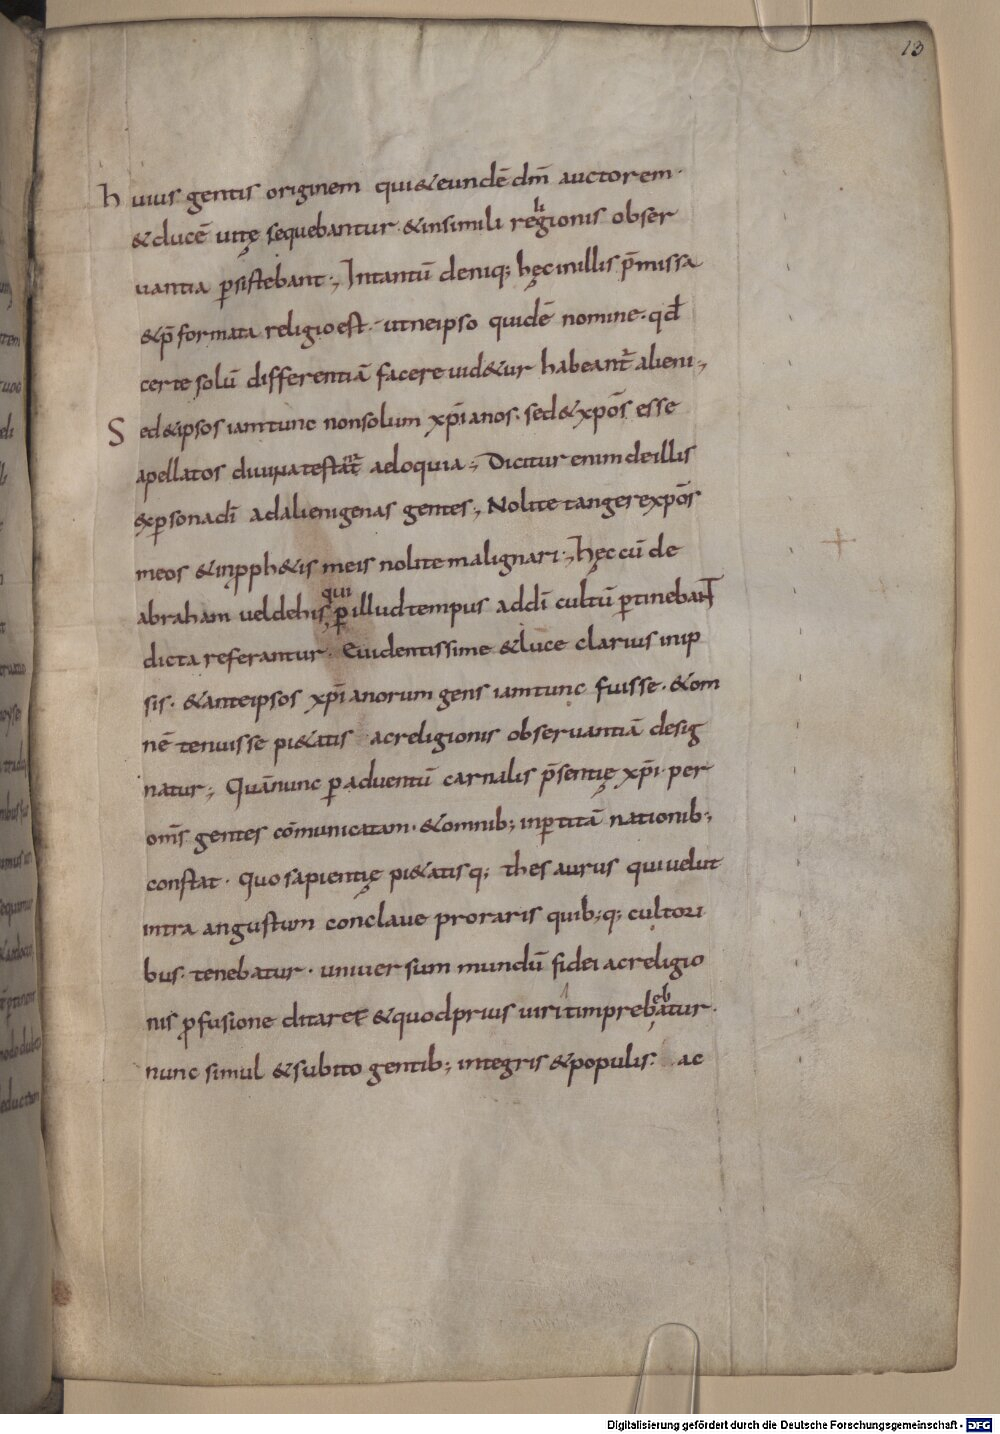 13
huius gentis originem qui & eundē dm̄ auctorem·
& ducē uitę sequebantur & insimili religionis obser
uantia ꝑsistebant·, Intantū deniq; hęc inillis p̄missa
& p̄formata religio est· ut ne ipso quidē nomine· qđ
certe solū differentiā facere uid&ur habeant᷑ alieni·,
Sed & ipsos iam tunc non solum xp̄ianos· sed & xp̄os esse
apellatos diuina testant᷑ adoquia·, Dicitur enim de illis
ex ꝑsona dī ad alienigenas gentes·, Nolite tangere xp̄os
meos & in pph&is meis nolite malignari·, hęc cū de
abraham uel de his, qui ꝑ illud tempus ad dī cultū ꝑtinebant
dicta referantur· Euidentissime & luce clarius in ip
sis· & ante ipsos xp̄ianorum gens iam tunc fuisse· & om
nē tenuisse pi&atis ac religionis obseruantiā desig
natur·, Quā nunc ꝑ aduentū carnalis p̄sentię xp̄i· per
om̄s gentes cōmunicatam· & omnib; inꝑtitā nationib;,
constat· Quo sapientię pi&atisq; thesaurus qui uelut
intra angustum conclaue pro raris quib;q; cultori
bus· tenebatur· uniuersum mundū fidei ac religio
nis ꝓfusione ditaret & quod prius uiritim prebebatur·
nunc simul & subito gentib; integris & populis· ac
Digitalisierung gefördert durch die Deutsche Forschungsgemeinschaft - DFG